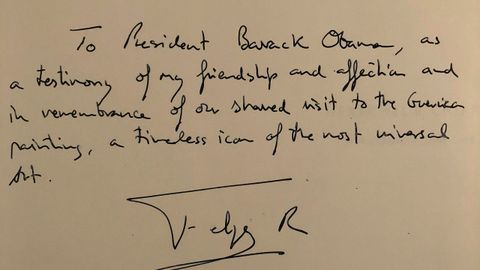 To President Barack Obama, as
a testimony of my friendship and affection and
in remembrance of our shared visit to the Guernica
painting, a timeless icon of the most universal
Art.
Felipe R